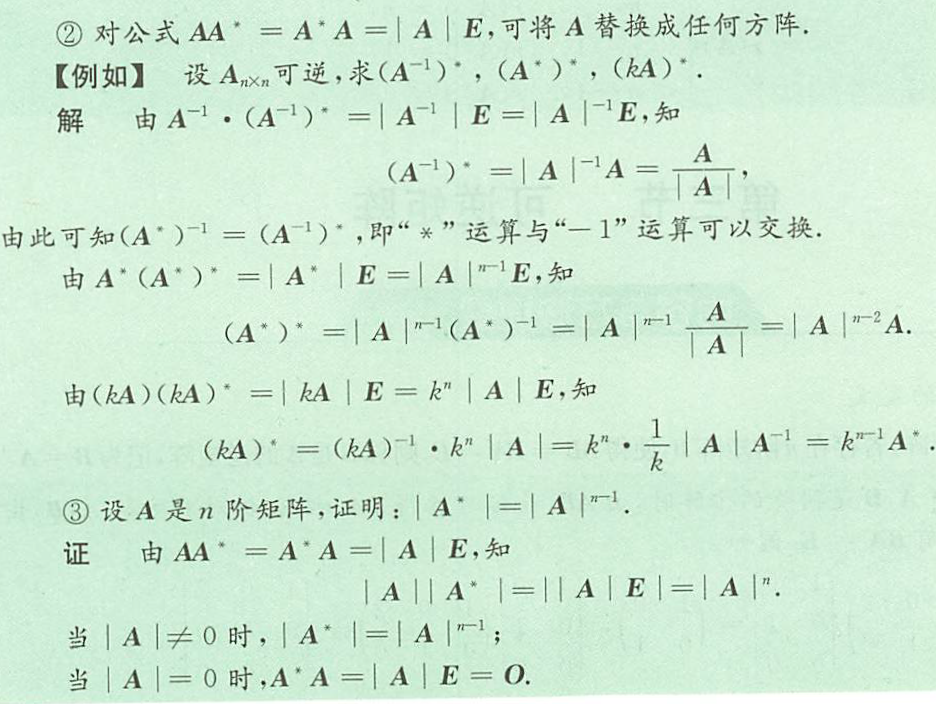 ② 对公式 AA* = A*A = | A | E,可将 A 替换成任何方阵.
【例如】 设 Aₙ×ₙ 可逆,求(A⁻¹)*,(A*)*,(kA)*.
解 由 A⁻¹ · (A⁻¹)* = | A⁻¹ | E = | A |⁻¹E,知
(A⁻¹)* = | A |⁻¹A = A / | A |,
由此可知(A*)⁻¹ = (A⁻¹)*,即“*”运算与“−1”运算可以交换.
由 A*(A*)* = | A* | E = | A |ⁿ⁻¹E,知
(A*)* = | A |ⁿ⁻¹(A*)⁻¹ = | A |ⁿ⁻¹ A / | A | = | A |ⁿ⁻²A.
由(kA)(kA)* = | kA | E = kⁿ | A | E,知
(kA)* = (kA)⁻¹ · kⁿ | A | = kⁿ · 1/k | A | A⁻¹ = kⁿ⁻¹A*.
③ 设 A 是 n 阶矩阵,证明:| A* | = | A |ⁿ⁻¹.
证 由 AA* = A*A = | A | E,知
| A || A* | = || A | E | = | A |ⁿ.
当 | A | ≠ 0 时,| A* | = | A |ⁿ⁻¹;
当 | A | = 0 时,A*A = | A | E = O.